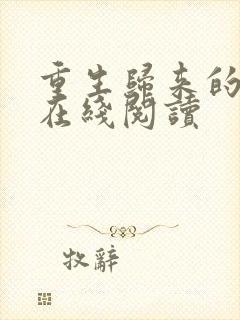 重生歸來的
在綫閱讀
牧辭